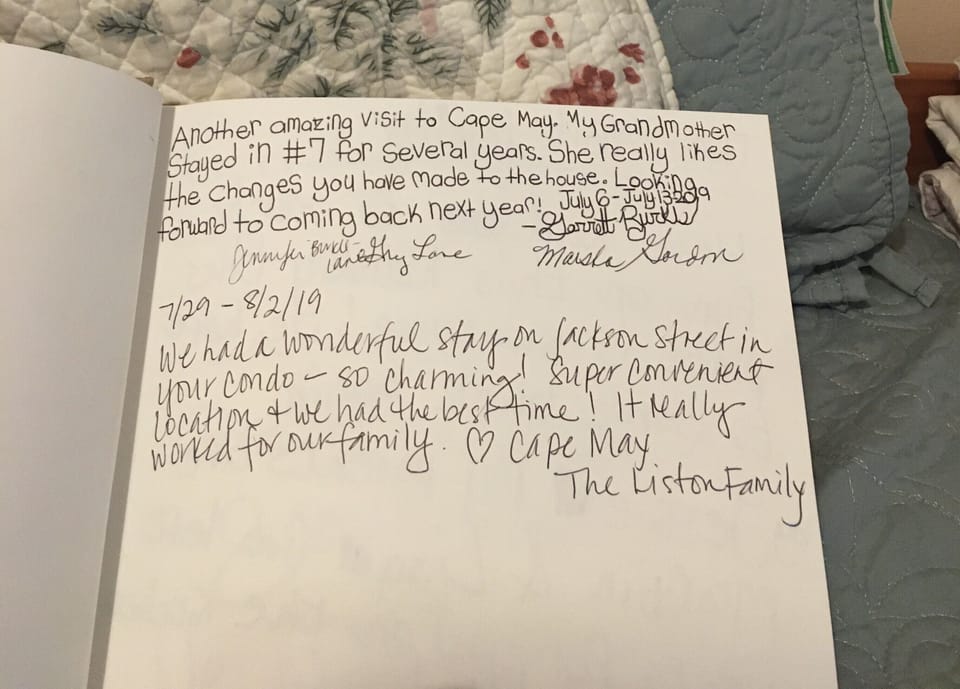 Another amazing visit to Cape May. My Grandmother
Stayed in #7 for several years. She really likes
the changes you have made to the house. Looking
forward to coming back next year! July 6 - July 13 2019
- Garrett Burke
Jennifer Lane Lane Marsha Gordon
7/29 - 8/2/19
We had a wonderful stay on Jackson Street in
your condo - so charming! Super convenient
location + we had the best time! It really
worked for our family. ♡ Cape May
The Liston Family